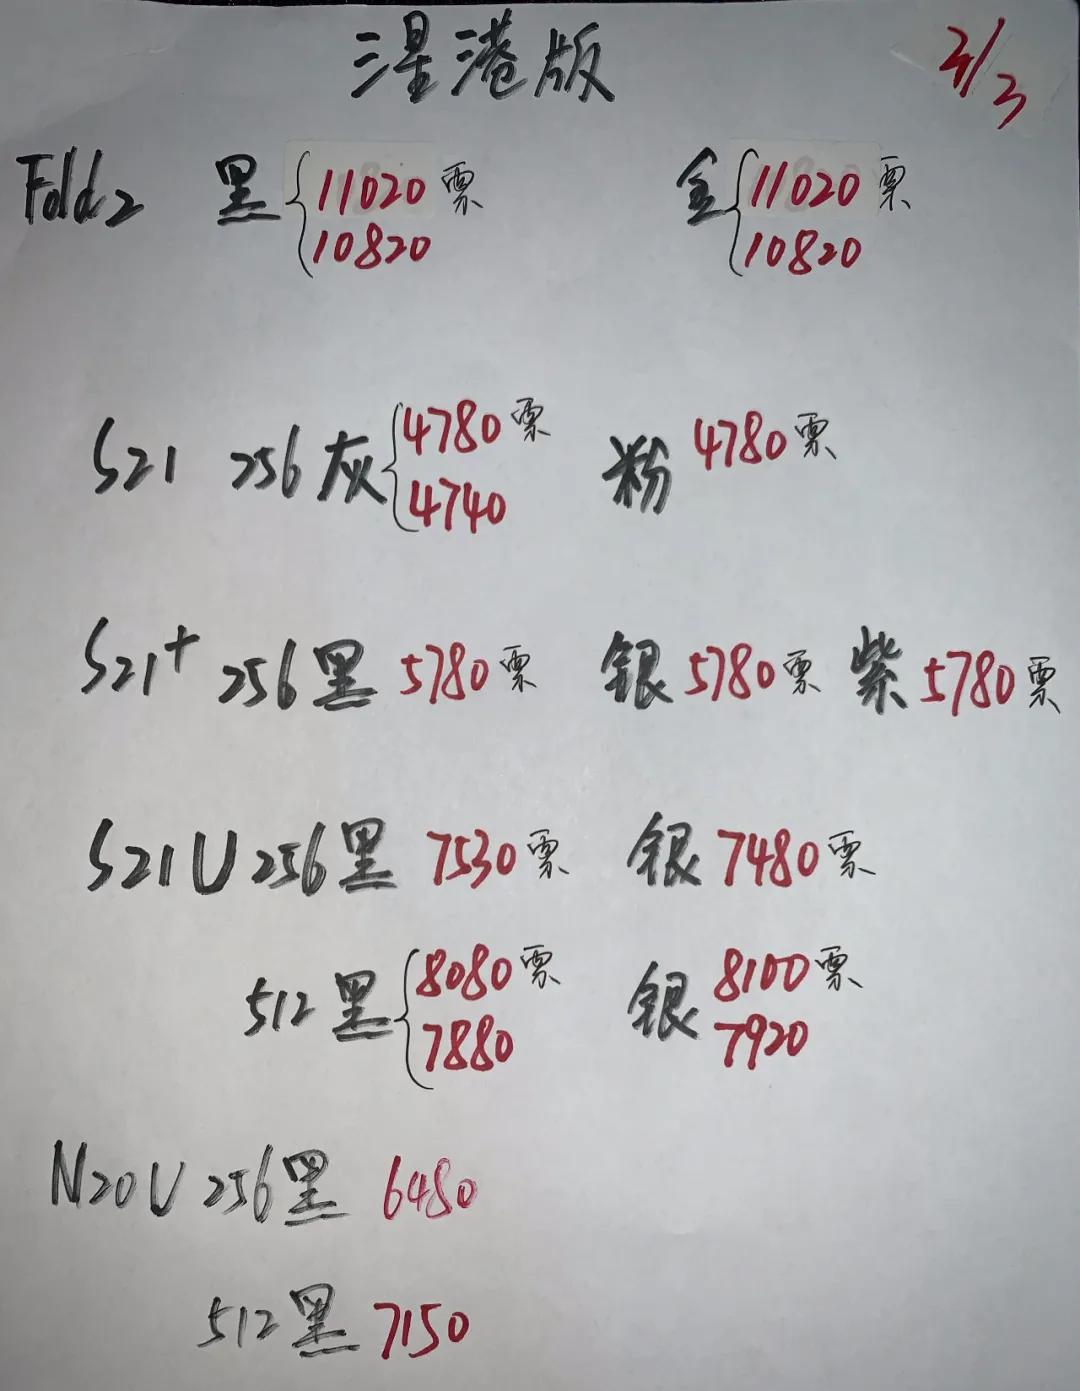 三星港版 3/3
Fold2 黑 11020票 金 11020票
10820 10820
S21 256 灰 4780票 粉 4780票
4740
S21+ 256 黑 5780票 银 5780票 紫 5780票
S21U 256 黑 7530票 银 7480票
512 黑 8080票 银 8100票
7880 7920
N20U 256 黑 6480
512 黑 7150